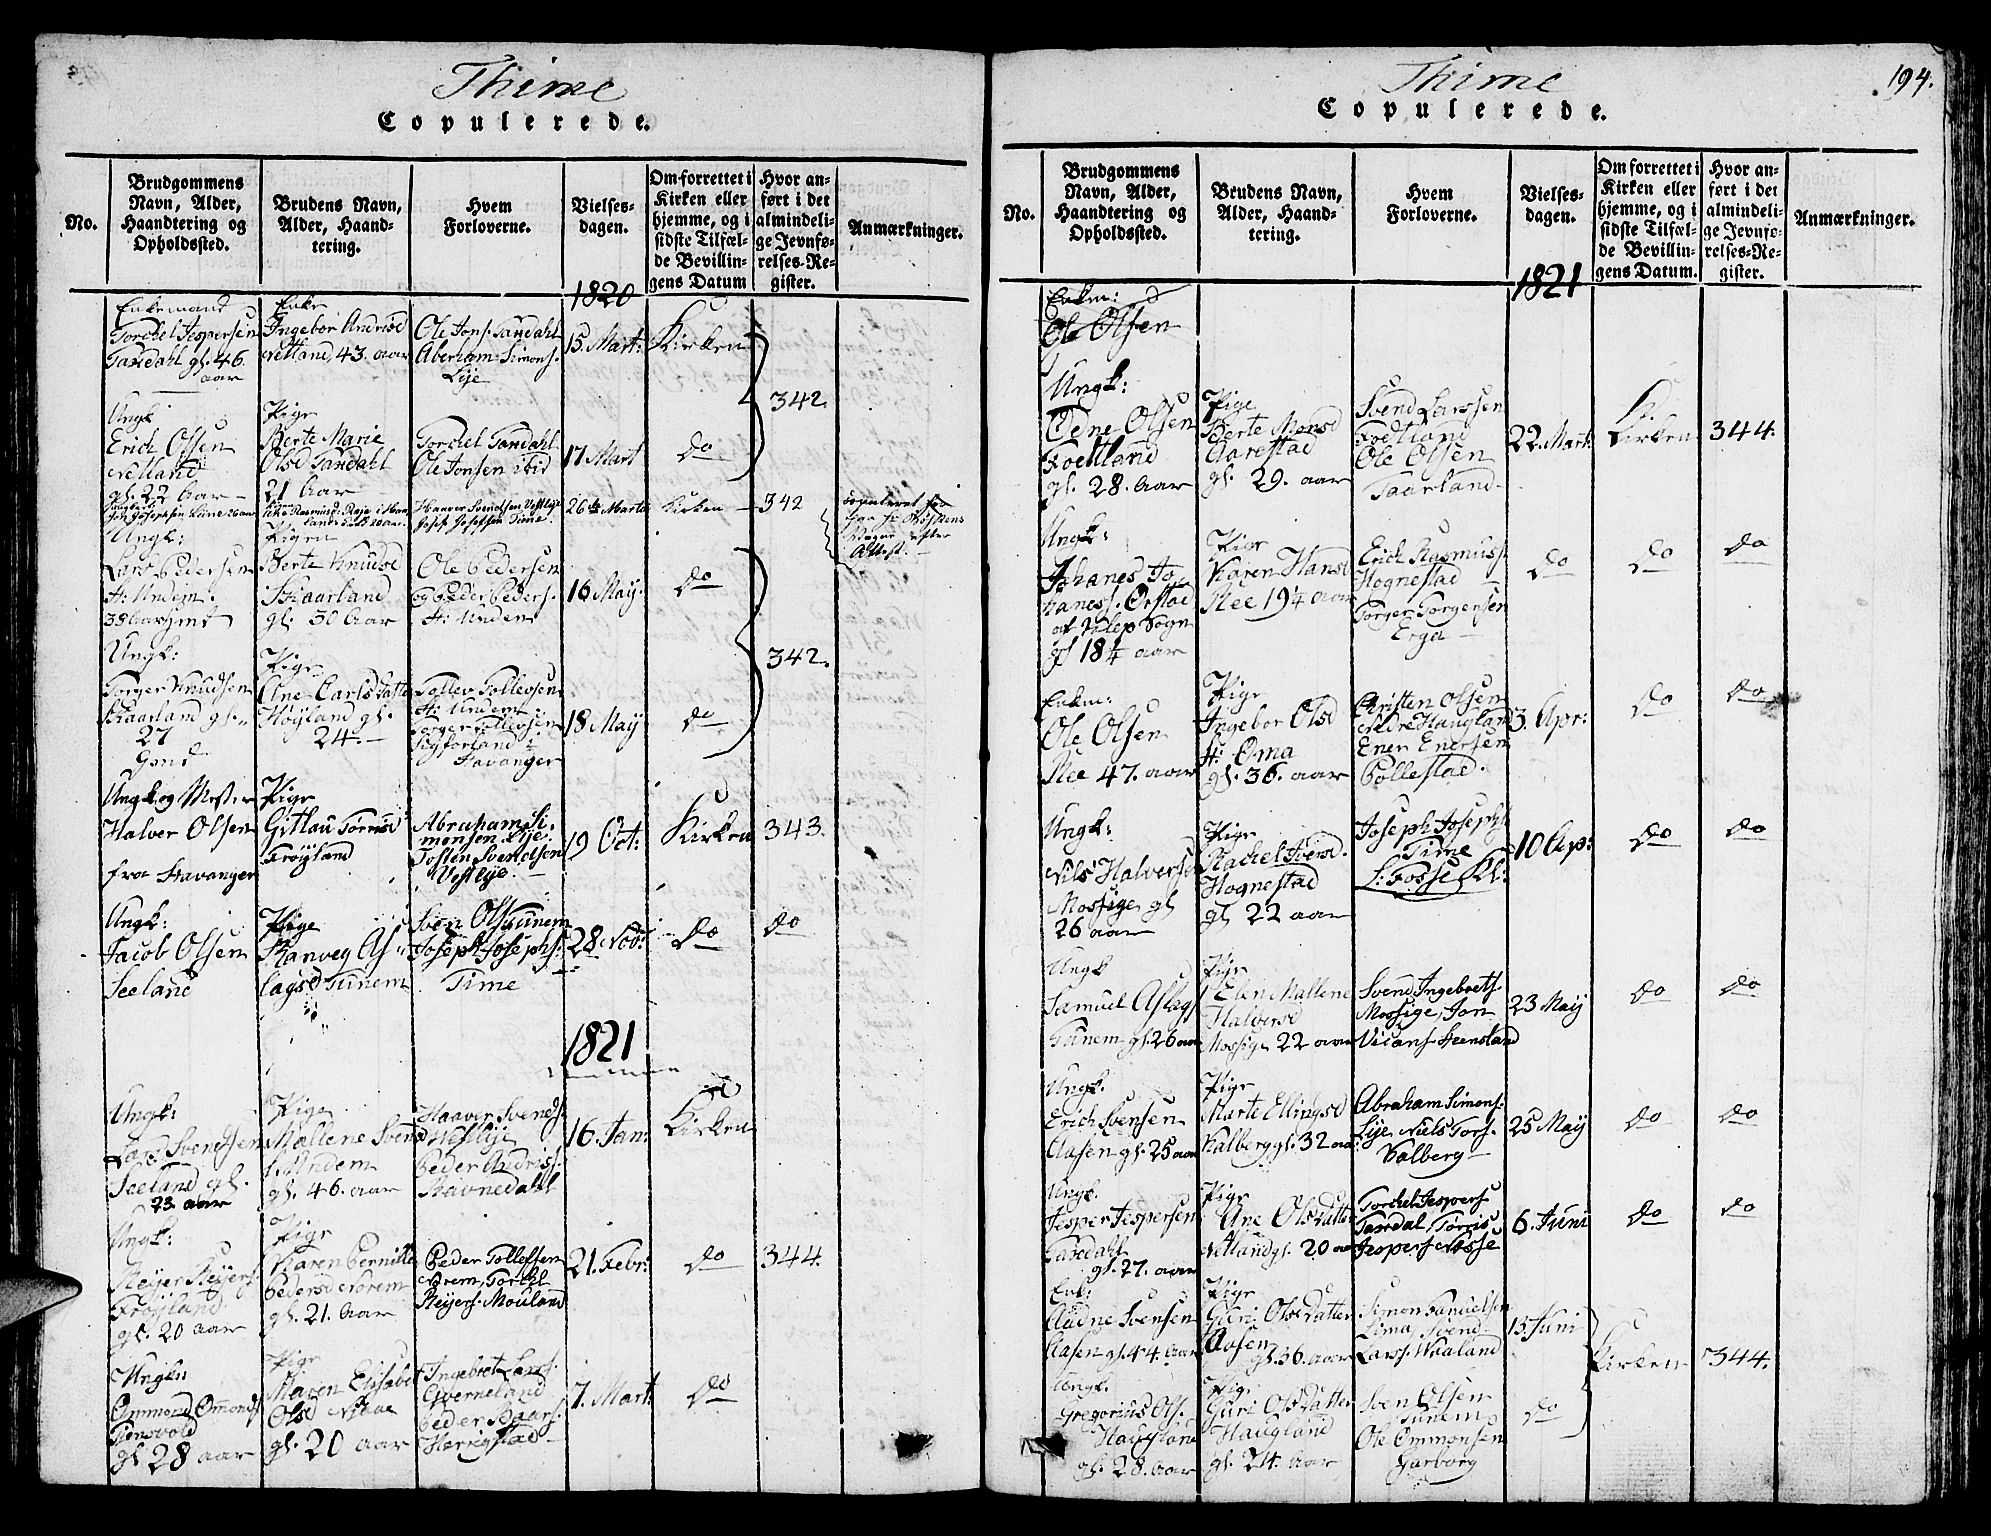 Thime
Copulerede.
No.
Brudgommens
Navn, Alder,
Haandtering og
Opholdssted.
Brudens Navn,
Alder, Haand-
tering.
Hvem
Forloverne.
Vielses-
dagen.
Om forrettet i
Kirken eller
hjemme, og i
sidste Tilfæl-
de Bevillin-
gens Datum
Hvor an-
ført i det
almindeli-
ge Jevnfø-
relses-Re-
gister.
Anmærkninger.
1820
Enkemand
Torchel Jespersen
Taxdahl gl. 46.
aar
Enke
Ingebor Andrisd
Netland, 43. aar
Ole Jons. Taxdahl
Aberham Simons.
Lye
15. Mart:
Kirken
342.
Ungk:
Erich Olsen
Netland
gl. 22 Aar
Pige
Berte Marie
Olsd Taxdahl
21 Aar
Torchel Taxdahl
Ole Jonsen ibid
17 Mart
do
Haaver Svendsen Vestlye
Josef Josefsen Time.
26 de Marts
Kirken
342
Attest.
Ungk:
Lars Pedersen
H: Undem.
Pigen
Berte Knudsd
Skaarland
gl: 30 Aar
Ole Pedersen
og Peder Peders.
H: Undem
16 May.
do
342.
Ungk:
Torger Knudsen
Skaarland gl.
27
Pige
Ane Carls datter
Høyland gl.
24.
Tollev Tollevsen
H: Undem
Torger Tollevsen
Stavanger
18 May
do
Ungk og Mester
Halver Olsen
fra Stavanger
Pige
Gitlau Torrisd
Frøyland
Abraham Si-
monsen Lye.
Tosten Svendsen
Vestlye.
19 Oct:
Kirken
343.
Ungk:
Jacob Olsen
Seeland
Pige
Ranveg As-
lagsd Tunem
Sven Ols Tunem
Joseph Josephs.
Time
28 Nov:
do
do
1821
Ungk:
Lars Svendsen
Seeland gl.
23 aar
Pige
Mallene Svensd
Undem
gl. 46. aar
Haaver Svends.
Westlye
Peder Andriss.
Ravnedahl
16. Jan:
Kirken
Ungk:
Reyer Reyers.
Frøyland
gl. 20 aar
Pige
Karen Pernille
Pedersd Norem
gl. 21. Aar
Peder Tollefsen
Norem, Torchl
Reyers. Mouland
21. Febr:
do
344.
Ungkn
Ommond Omonds
Tiensvold
gl 28 aar
Pige
Maren Elisabet
Olsd Niaae
gl. 20 aar
Ingebret Lars.
Qverneland
Peder Baars.
Herrigstad
7. Mart.
do
Thime
194.
Copulerede.
No.
Brudgommens
Navn, Alder,
Haandtering og
Opholdssted.
Brudens Navn,
Alder, Haand-
tering.
Hvem
Forloverne.
Vielses-
dagen.
Om forrettet i
Kirken eller
hjemme, og i
sidste Tilfæl-
de Bevillin-
gens Datum.
Hvor an-
ført i det
almindeli-
ge Jevnfø-
relses-Re-
gister.
Anmærkninger.
1821
Enkem:
Ole Olsen
Ungk:
Odne Olsen
Foetland
gl. 28. Aar
Pige
Berte Monsd
Aarestad
gl. 29. aar
Svend Larssen
Foetland
Ole Olsen
Taarland
22. Mart.
Kirken
344.
Ungk:
Johanes Jo-
haness. Orstad
af Klep Sogn
gl 18¼ aar
Pige
Karen Hansd
Nee 19¼ aar
Erich Rasmuss.
Hognestad
Torger Torgersen
Erga
do
do
do
Enkm:
Ole Olsen
Nee 47. aar
Pige
Ingebor Olsd
H: Oma
gl. 36. aar
Christen Olsen
Nedre Haugland
Ener Enersen
Pollestad.
3. Apr:
do
do
Ungk:
Nils Halversen
Mossige gl
26 aar
Pige
Rachel Svensd.
Hognestad
gl 22 aar
Joseph Josephs.
Time
L: Fosse Kl:
10 Ap:
do
do
Ungk
Samuel Aslags
Tunem gl. 26 aar
Pige
Elen Mallene
Halversd
Mossige 22 aar
Svend Ingebrets.
Mossige, Jon
23 May
do
do
Ungk.
Erich Svensen
Aasen gl. 25 aar
Pige
Marte Ellingsd
Kalberg gl. 32 aar
Abraham Simons.
Lye Niels Tors.
Kalberg
25 May
do
do
Ungk.
Jesper Jespersen
Taxdahl
gl. 27. aar
Pige
Ane Olsdatter
Netland gl. 20 aar
Torchel Jespers
Taxdal, Torris
Jespers Nesse
6. Juni
do
do
Enk:
Audne Svensen
Aasen gl. 44. Aar
Pige
Guri Olsdatter
Aasen
gl. 36. aar
Simon Samuelsen
Lima, Svend
Larss. Waaland
13. Juni
Kirken
344.
Ungk.
Gregorius Ols.
Haugland
gl. 28. Aar
Pige
Guri Olsdatter
Haugland
gl. 24. Aar
Sven Olsen
Tunem
Ole Ommonsen
Garborg
do